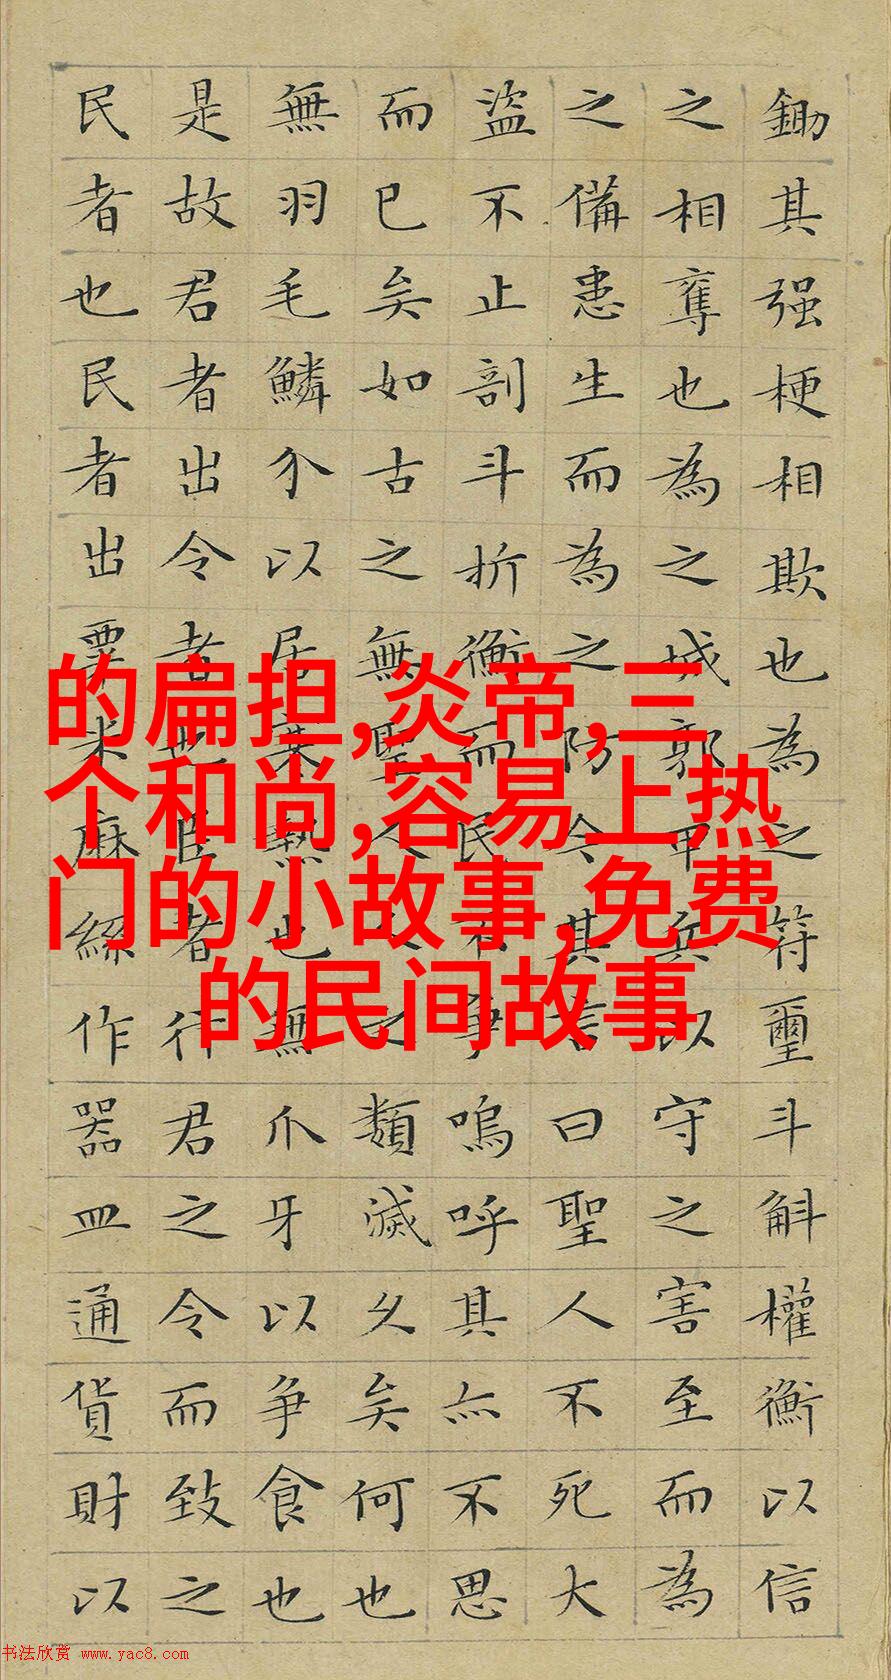 鋤其强梗相欺也為之符璽斗斛權衡以信
之相奪也為之城郭甲兵以守之害至而為
之備患生而為之防今其言曰聖人不死大
盜不止剖斗折衡而民不爭嗚呼其亦不思
而已矣如古之無聖人人之類滅久矣何也
無羽毛鱗介以居寒熱也無爪牙以爭食也
是故君者出令者也臣者行君之令而致之
民者也民者出粟米麻絲作器皿通貨財以
的扁担,炎帝,三
个和尚,容易上热
门的小故事,免费
的民间故事
书法欣赏 www.yac8.com